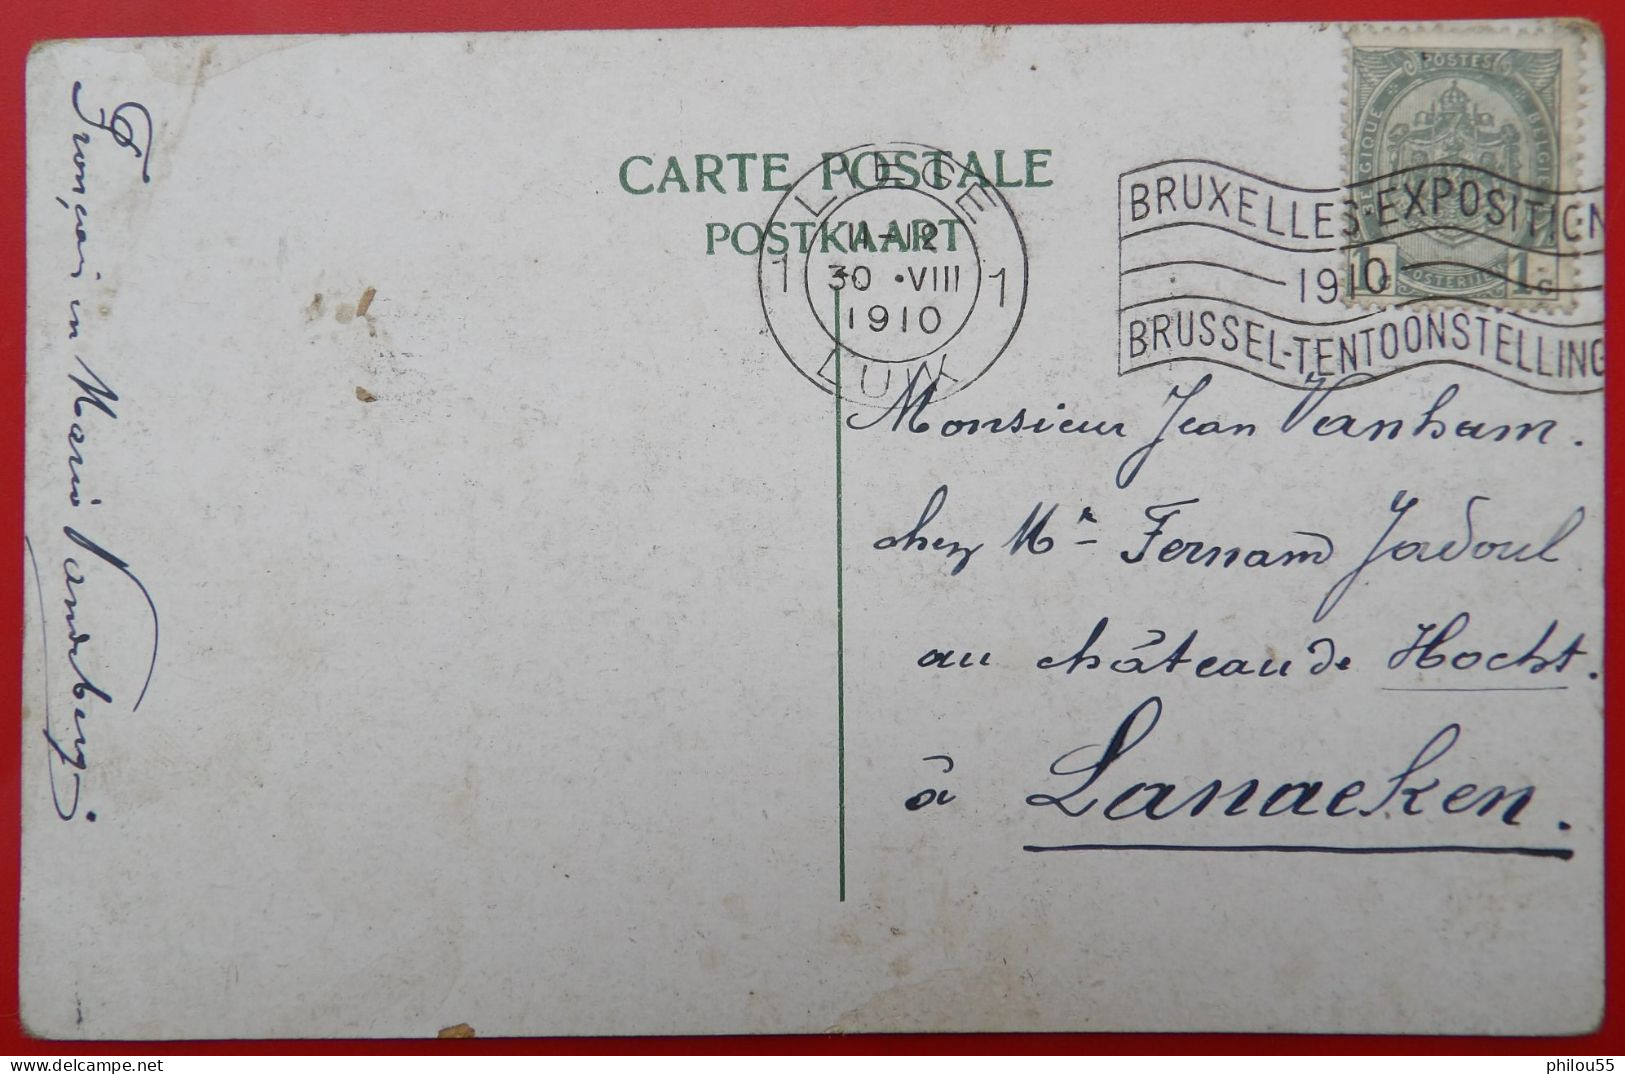 CARTE POSTALE
POSTKAART
LIEGE
1 11-12 1
30 •VIII
1910
LUIK
BRUXELLES-EXPOSITION
1910
BRUSSEL-TENTOONSTELLING
POSTES
BELGIQUE
BELGIE
POSTERIJEN
1 c 1 c
Monsieur Jean Vanham.
chez Mr Fernand Jadoul
au château de Hocht.
à Lanaeken.
François en Maria Vandeberg
philou55